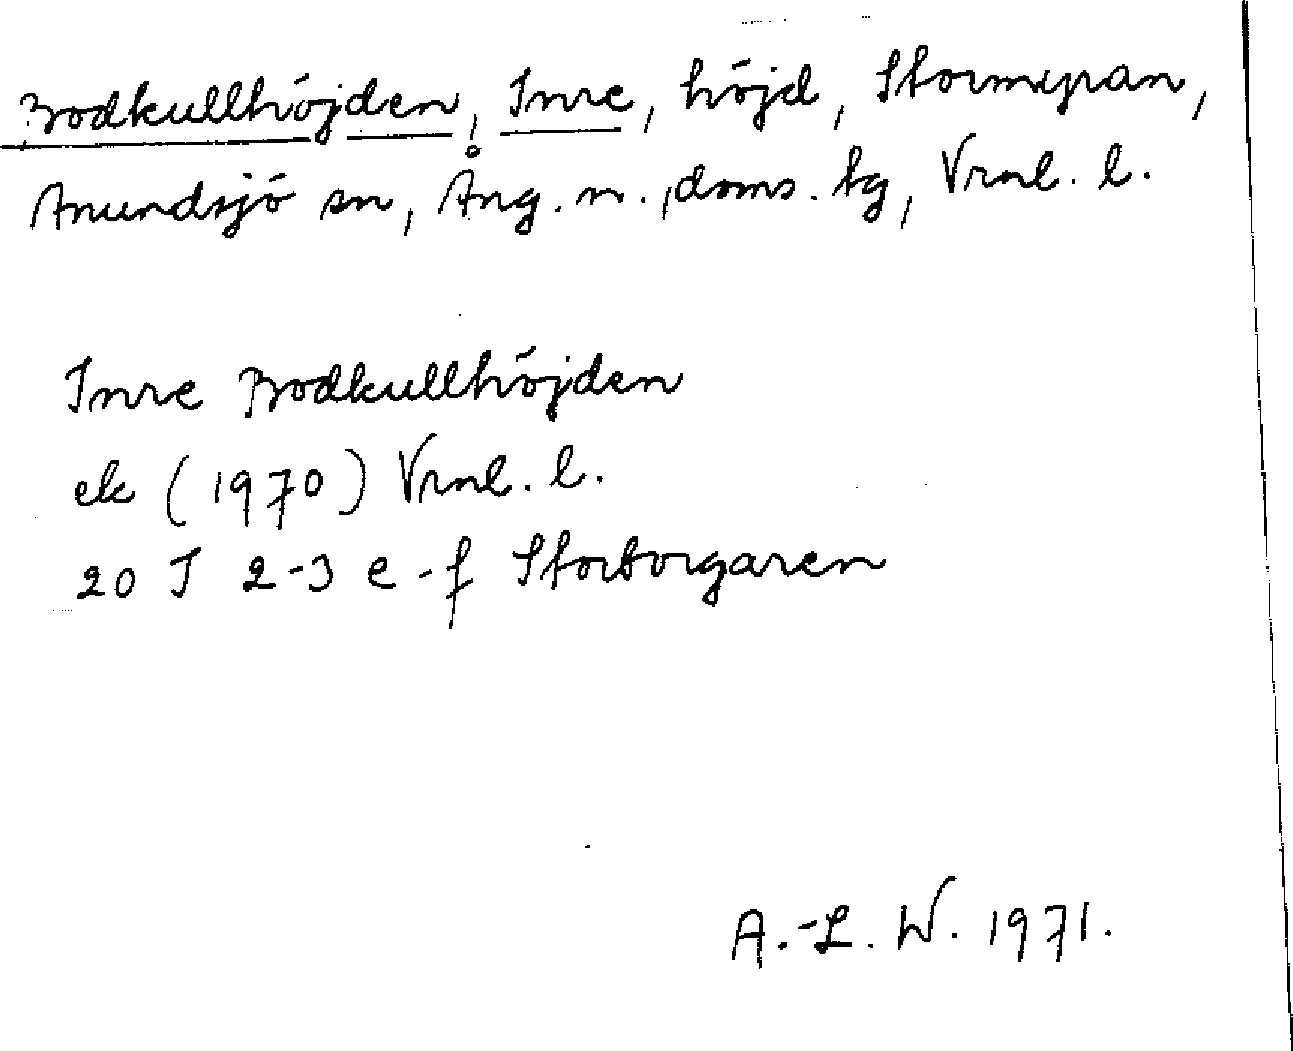 Bodkullhöjden, Inre, höjd, Stormyran,
Anundsjö sn, Ång. n., doms. tg, Vrnl. l.
Inre Bodkullhöjden
ek (1970) Vrnl. l.
20 J 2-3 e-f Storborgaren
A.-L. W. 1971.